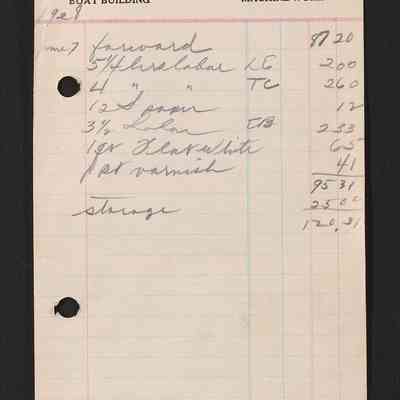 BOAT BUILDING MACHINE WORK
1928
June 7 forward 87 20
hrs labor LE 2 00
4 " " TC 2 60
12 S paper 12
3½ Labor EB 2 33
1 qt Flat White 65
1 pt varnish 41
95 31
storage 25 00
120.31